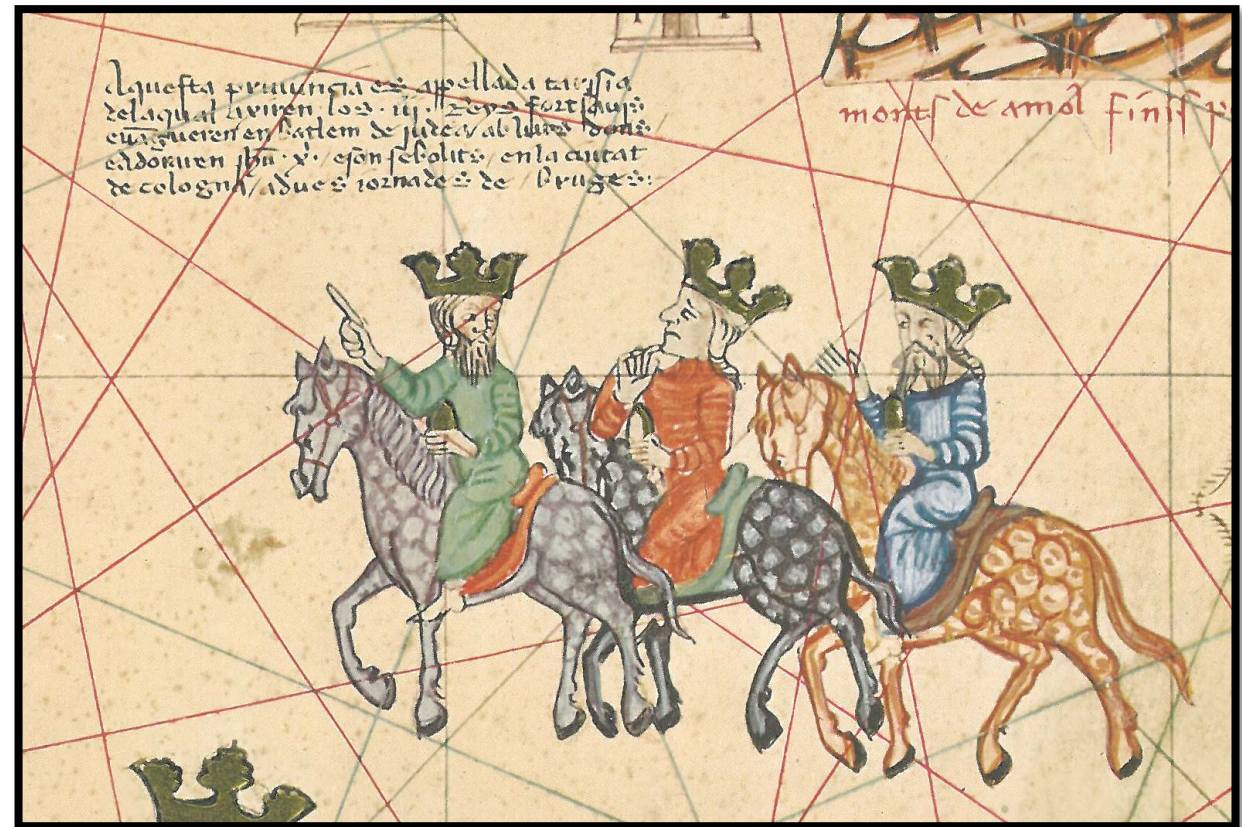 Aquesta provincia es apellada tarssia
dela qual axiren los · iij · Reys fort savis
e vāgueren en batlem de judea / ab lurs dons
e adōraren jhū · x̄ · / e sōn sebolits / en la ciutat
de cologna / a dues iornades de / bruges :
monts de amol finis p